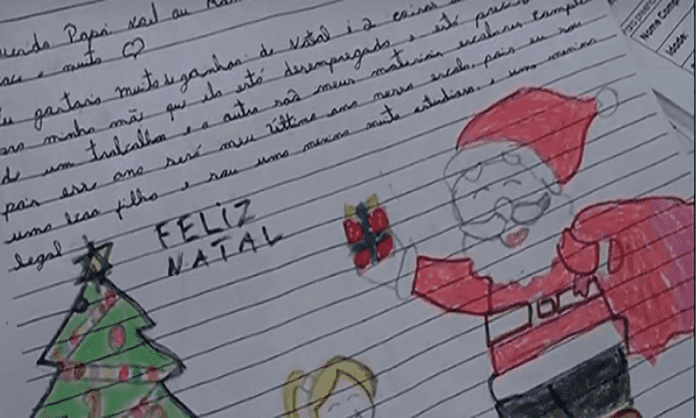 Querido Papai Noel ou
muito ♡
Eu gostaria muito de ganhar de Natal é 2 coisas
minha mãe que ela está desempregada e está
de um trabalho e a outra são meus materiais escolares
pois esse ano será meu último ano nessa escola, pois eu sou
uma boa filha e sou uma menina muito estudiosa, e uma menina
legal
FELIZ
NATAL
Nome Comp
Idade: